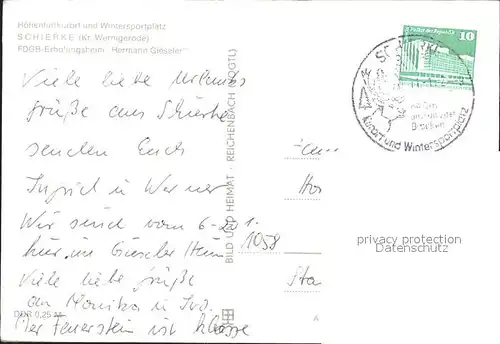 Höhenluftkurort und Wintersportplatz
SCHIERKE (Kr. Wernigerode)
FDGB-Erholungsheim "Hermann Gieseler"
Viele liebe Urlaubs
grüße aus Schierke
senden Euch
Ingrid u Werner
Wir sind vom 6-20 1.
hier im Gieseler Heim
Viele liebe Grüße
an Monika u
Der Feuerstein ist klasse
DDR 0,25 M
BILD UND HEIMAT · REICHENBACH (VOGTL)
1058
Palast der Republik
10
SCHIERKE
Kurort und Wintersportplatz
privacy protection
Datenschutz
A